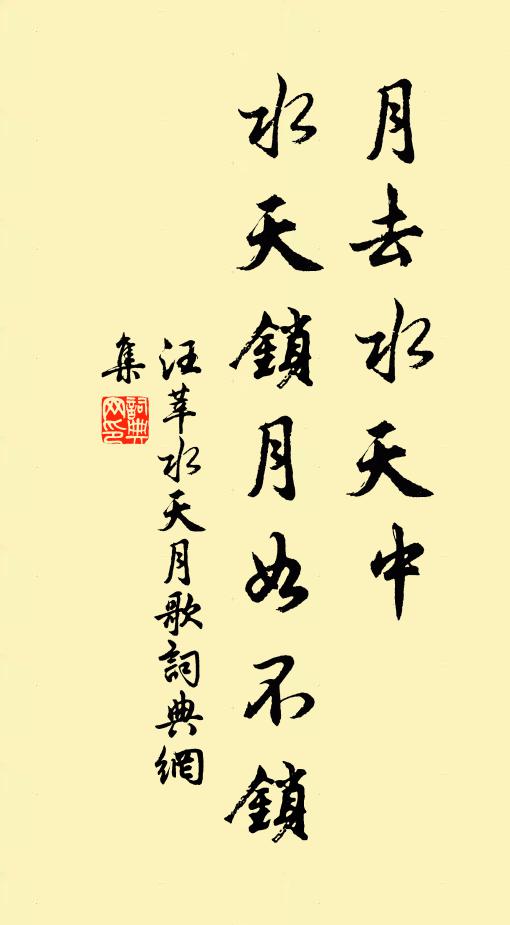 月去水天中
水天鎖月如不鎖
汪萃水天月歌詞典網
集
詞典網印